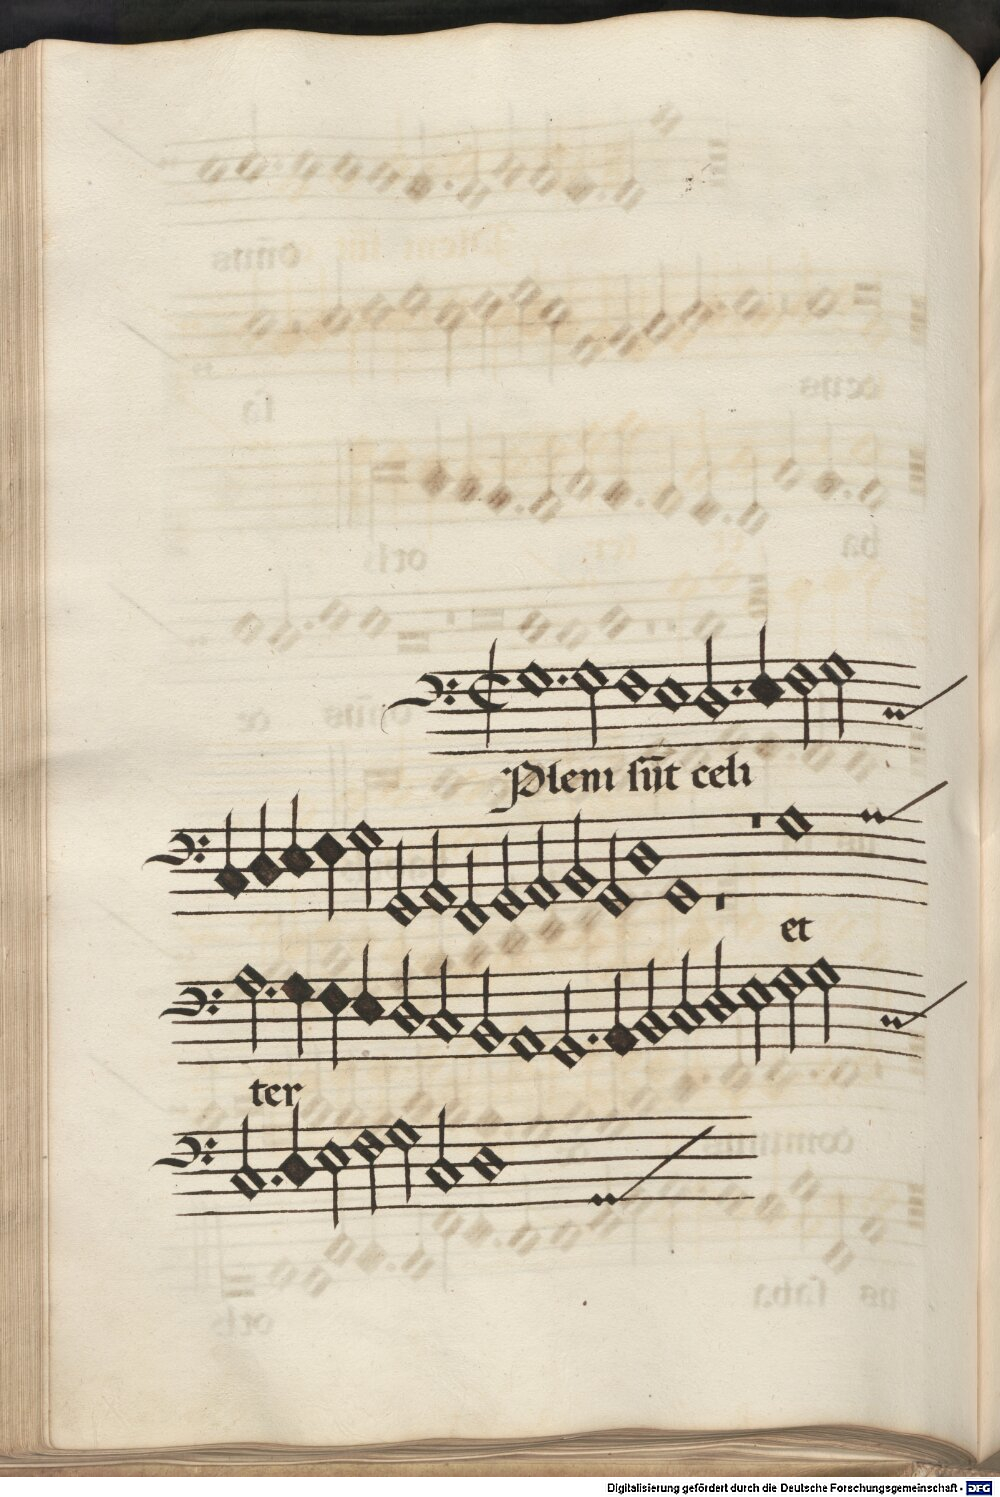 Pleni sūt celi
et
ter
Digitalisierung gefördert durch die Deutsche Forschungsgemeinschaft - DFG